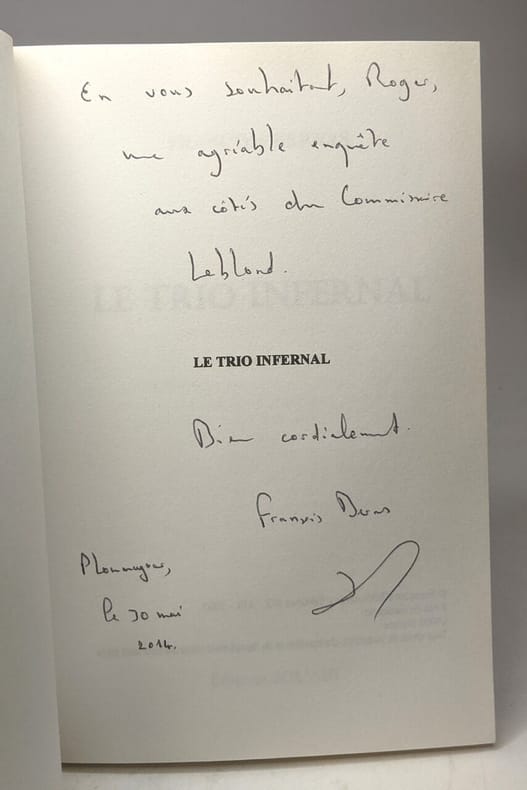 En vous souhaitant, Roger,
une agréable enquête
aux côtés du Commissaire
Leblond.
LE TRIO INFERNAL
LE TRIO INFERNAL
Bien cordialement.
François
le 30 mai
2014.